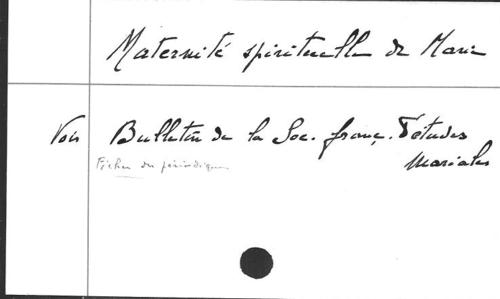 Maternité spirituelle de Marie
Voir Bulletin de la Soc. franç. d'études
Mariales
Fichier des périodiques